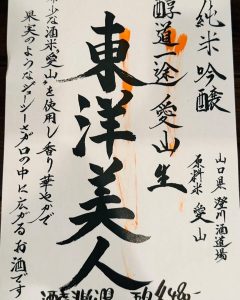 純米吟醸
醇道一途 愛山 生
山口県 澄川酒造場
原料米 愛山
東洋美人
少な酒米"愛山"を使用し香り華やかで
果実のようなジューシーさが口の中に広がるお酒です